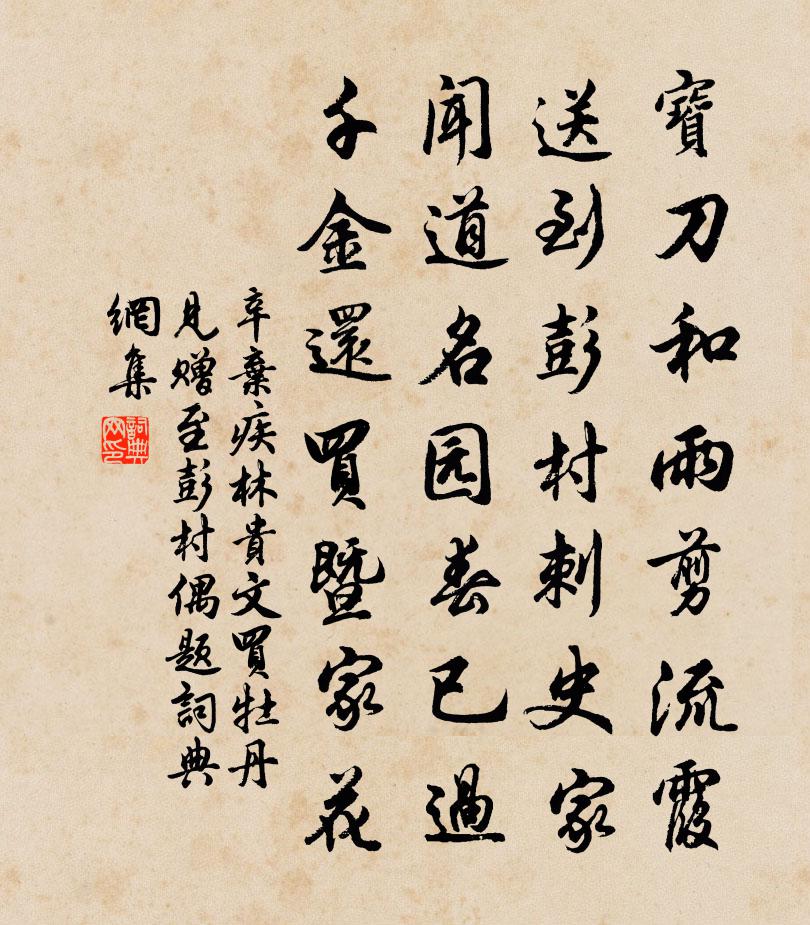 寶刀和雨剪流霞
送到彭村刺史家
闻道名园春已過
千金還買暨家花
辛棄疾林貴文買牡丹
見贈至彭村偶题詞典
網集
詞典網印